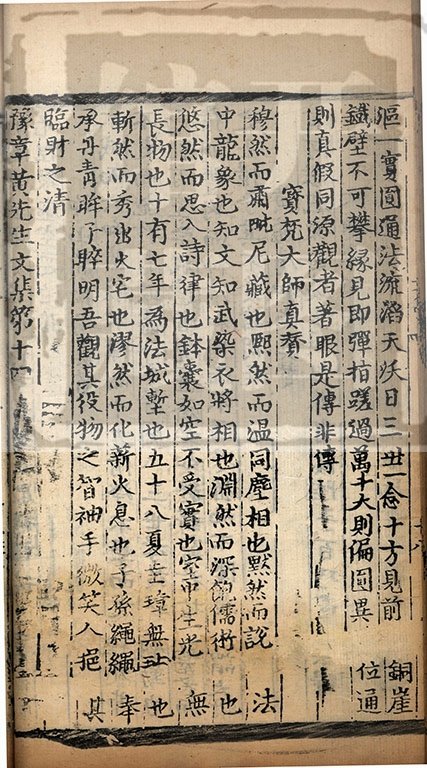 漚一實圓通法流滔天沃日三世一念十方見前銅崖
鐵壁不可攀緣見即彈指蹉過萬十大則偏圓異位通
則真假同源觀者著眼是傳非傳
寶梵大師真贊
穆然而肅毗尼藏也熙然而温同塵相也默然而說法
中龍象也知文知武染衣將相也淵然而深飾儒術也
悠然而思入詩律也鉢囊如空不受實也室中生光無
長物也十有七年為法城塹也五十八夏圭璋無玷也
嶄然而秀出火宅也漻然而化薪火息也子孫繩繩奉
承丹青眸子睟明吾觀其役物之智袖手微笑人挹其
臨財之清
豫章黃先生文集第十四